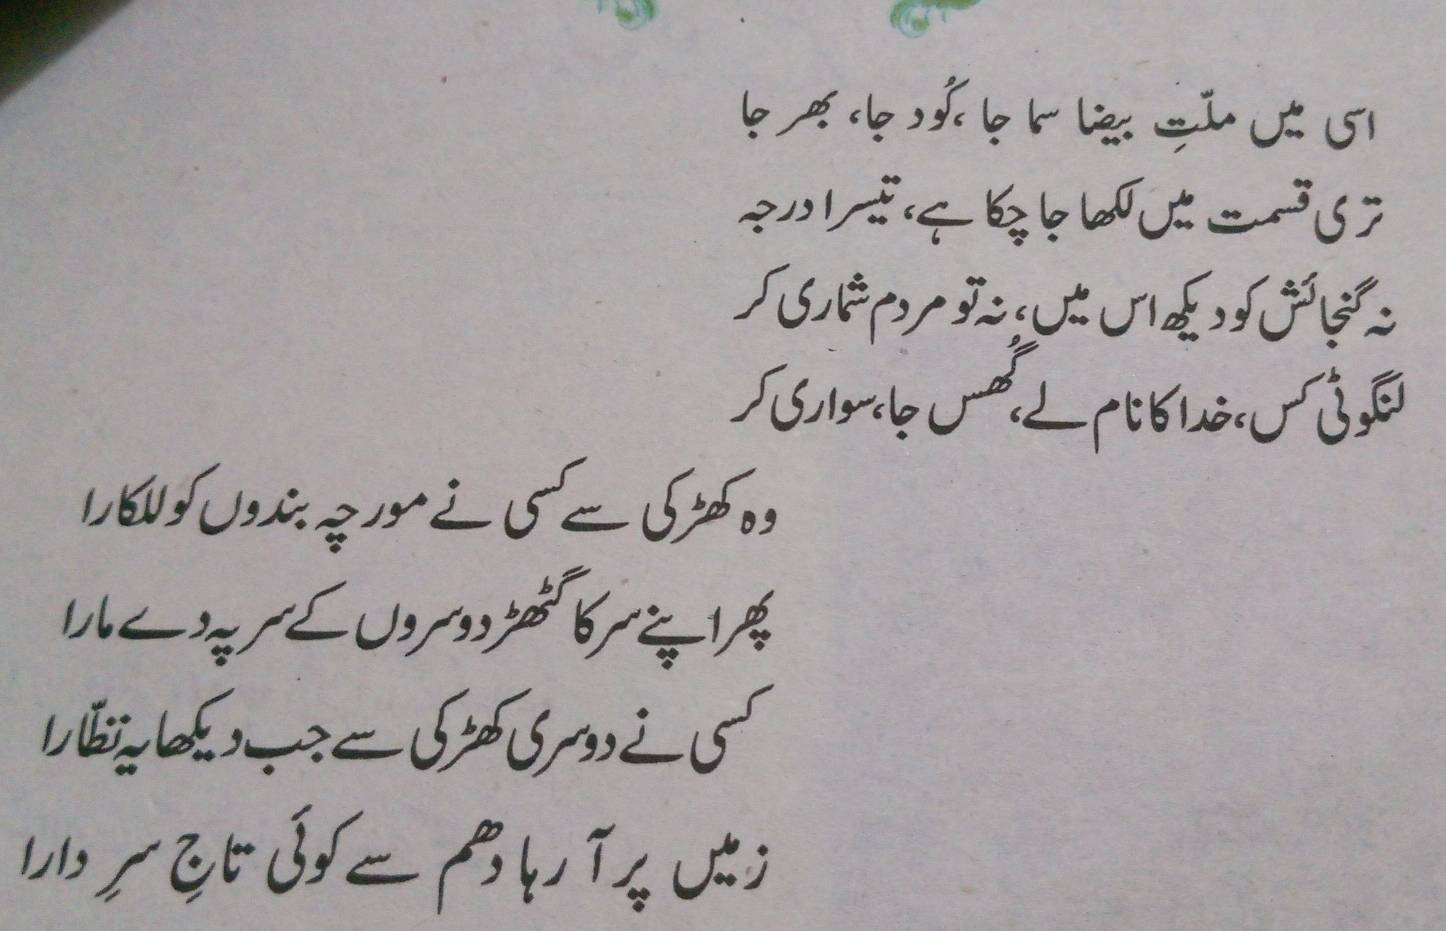 اسی میں ملّتِ بیضا سما جا ،کُود جا، بھر جا
تری قسمت میں لکھا جا چکا ہے، تیسرا درجہ
نہ گنجائش کو دیکھ اس میں، نہ تو مردم شماری کر
لنگوٹی کس، خدا کا نام لے، گُھس جا، سواری کر
وہ کھڑکی سے کسی نے مورچہ بندوں کو للکارا
پھر اپنے سر کا گٹھڑ دوسروں کے سر پہ دے مارا
کسی نے دوسری کھڑکی سے جب دیکھا یہ نظّارا
زمیں پر آ رہا دھم سے کوئی تاجِ سرِ دارا